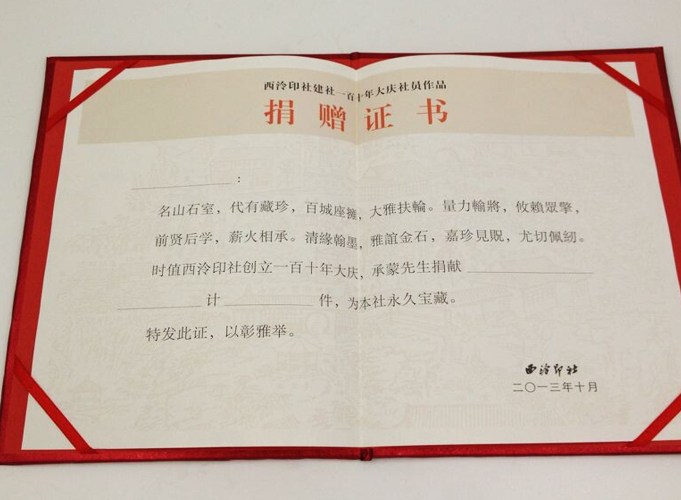 西泠印社建社一百十年大庆社员作品
捐赠证书
：
名山石室，代有藏珍，百城座擁，大雅扶輪。量力輸將，攸賴眾擎，
前贤后学，薪火相承。清緣翰墨，雅誼金石，嘉珍見貺，尤切佩紉。
时值西泠印社创立一百十年大庆，承蒙先生捐献
计 件，为本社永久宝藏。
特发此证，以彰雅举。
西泠印社
二〇一三年十月